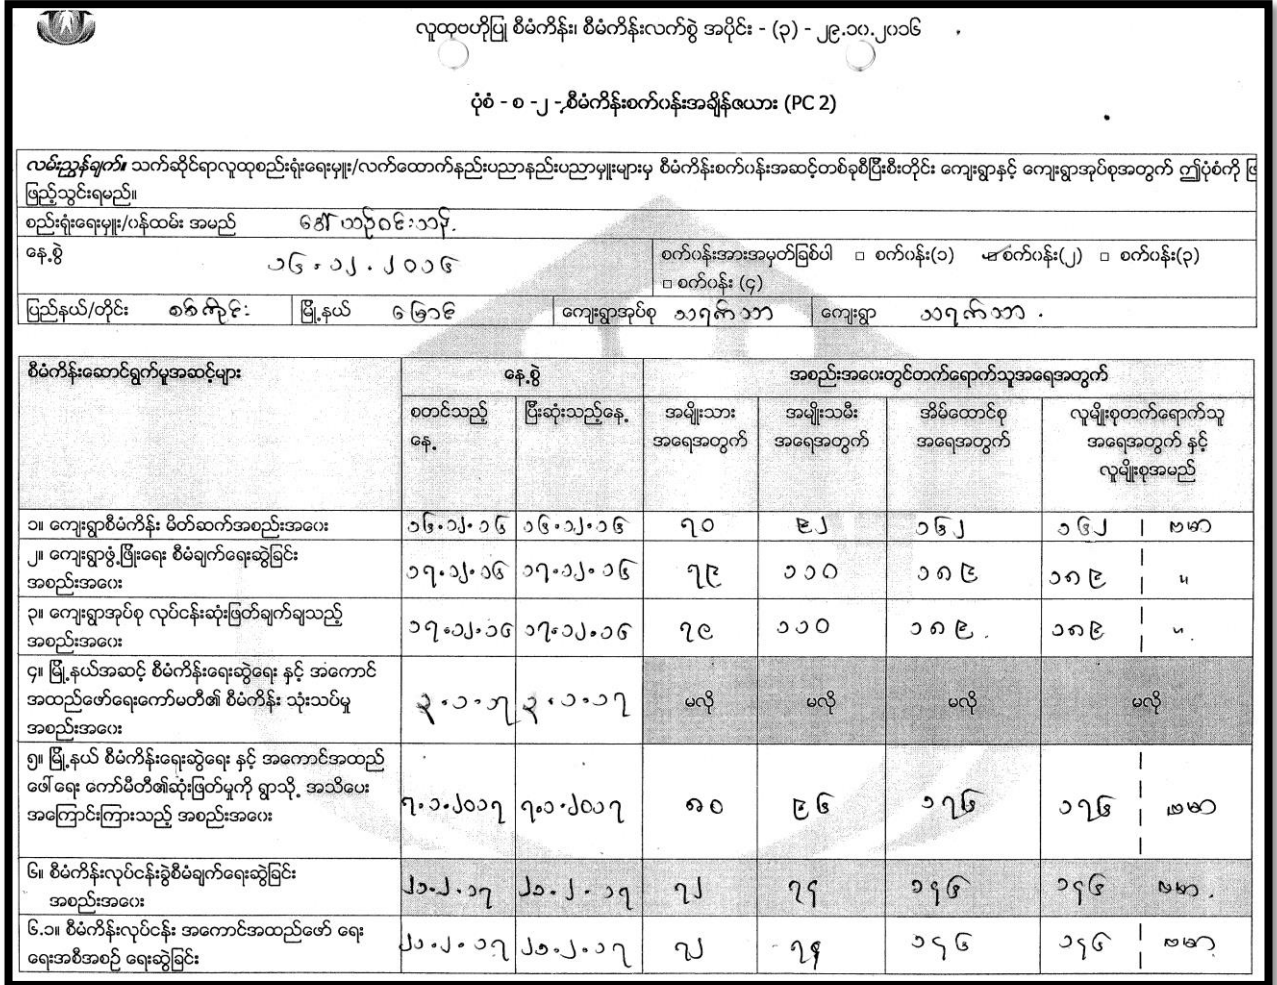 လူထုဗဟိုပြု စီမံကိန်း၊ စီမံကိန်းလက်စွဲ အပိုင်း - (၃) - ၂၉.၁၀.၂၀၁၆
ပုံစံ - စ -၂ - စီမံကိန်းစက်ဝန်းအချိန်ဇယား (PC 2)
လမ်းညွှန်ချက်။ သက်ဆိုင်ရာလူထုစည်းရုံးရေးမှူး/လက်ထောက်နည်းပညာနည်းပညာမှူးများမှ စီမံကိန်းစက်ဝန်းအဆင့်တစ်ခုစီပြီးစီးတိုင်း ကျေးရွာနှင့် ကျေးရွာအုပ်စုအတွက် ဤပုံစံကို
ဖြည့်သွင်းရမည်။
စည်းရုံးရေးမှူး/ဝန်ထမ်း အမည်
နေ့စွဲ ၁၆.၁၂.၂၀၁၆ စက်ဝန်းအားအမှတ်ခြစ်ပါ □ စက်ဝန်း(၁) ☑ စက်ဝန်း(၂) □ စက်ဝန်း(၃)
□ စက်ဝန်း (၄)
ပြည်နယ်/တိုင်း စစ်ကိုင်း မြို့နယ် မြောင် ကျေးရွာအုပ်စု သရက်သာ ကျေးရွာ သရက်သာ
စီမံကိန်းဆောင်ရွက်မှုအဆင့်များ နေ့စွဲ အစည်းအဝေးတွင်တက်ရောက်သူအရေအတွက်
စတင်သည့် ပြီးဆုံးသည့်နေ့ အမျိုးသား အမျိုးသမီး အိမ်ထောင်စု လူမျိုးစုတက်ရောက်သူ
နေ့ အရေအတွက် အရေအတွက် အရေအတွက် အရေအတွက် နှင့်
လူမျိုးစုအမည်
၁။ ကျေးရွာစီမံကိန်း မိတ်ဆက်အစည်းအဝေး ၁၆.၁၂.၁၆ ၁၆.၁၂.၁၆ ၇၀ ၉၂ ၁၆၂ ၁၆၂ ဗမာ
၂။ ကျေးရွာဖွံ့ဖြိုးရေး စီမံချက်ရေးဆွဲခြင်း
အစည်းအဝေး ၁၇.၁၂.၁၆ ၁၇.၁၂.၁၆ ၇၉ ၁၁၀ ၁၈၉ ၁၈၉ "
၃။ ကျေးရွာအုပ်စု လုပ်ငန်းဆုံးဖြတ်ချက်ချသည့်
အစည်းအဝေး ၁၇.၁၂.၁၆ ၁၇.၁၂.၁၆ ၇၉ ၁၁၀ ၁၈၉ ၁၈၉ "
၄။ မြို့နယ်အဆင့် စီမံကိန်းရေးဆွဲရေး နှင့် အကောင်
အထည်ဖော်ရေးကော်မတီ၏ စီမံကိန်း သုံးသပ်မှု ၃.၁.၁၇ ၃.၁.၁၇ မလို မလို မလို မလို
အစည်းအဝေး
၅။ မြို့နယ် စီမံကိန်းရေးဆွဲရေး နှင့် အကောင်အထည်
ဖေါ်ရေး ကော်မီတီ၏ဆုံးဖြတ်မှုကို ရွာသို့ အသိပေး ၇.၁.၂၀၁၇ ၇.၁.၂၀၁၇ ၈၀ ၉၆ ၁၇၆ ၁၇၆ ဗမာ
အကြောင်းကြားသည့် အစည်းအဝေး
၆။ စီမံကိန်းလုပ်ငန်းခွဲစီမံချက်ရေးဆွဲခြင်း
အစည်းအဝေး ၂၁.၂.၁၇ ၂၁.၂.၁၇ ၇၂ ၇၄ ၁၄၆ ၁၄၆ ဗမာ
၆.၁။ စီမံကိန်းလုပ်ငန်း အကောင်အထည်ဖော် ရေး
ရေးအစီအစဉ် ရေးဆွဲခြင်း ၂၁.၂.၁၇ ၂၁.၂.၁၇ ၇၂ ၇၄ ၁၄၆ ၁၄၆ ဗမာ